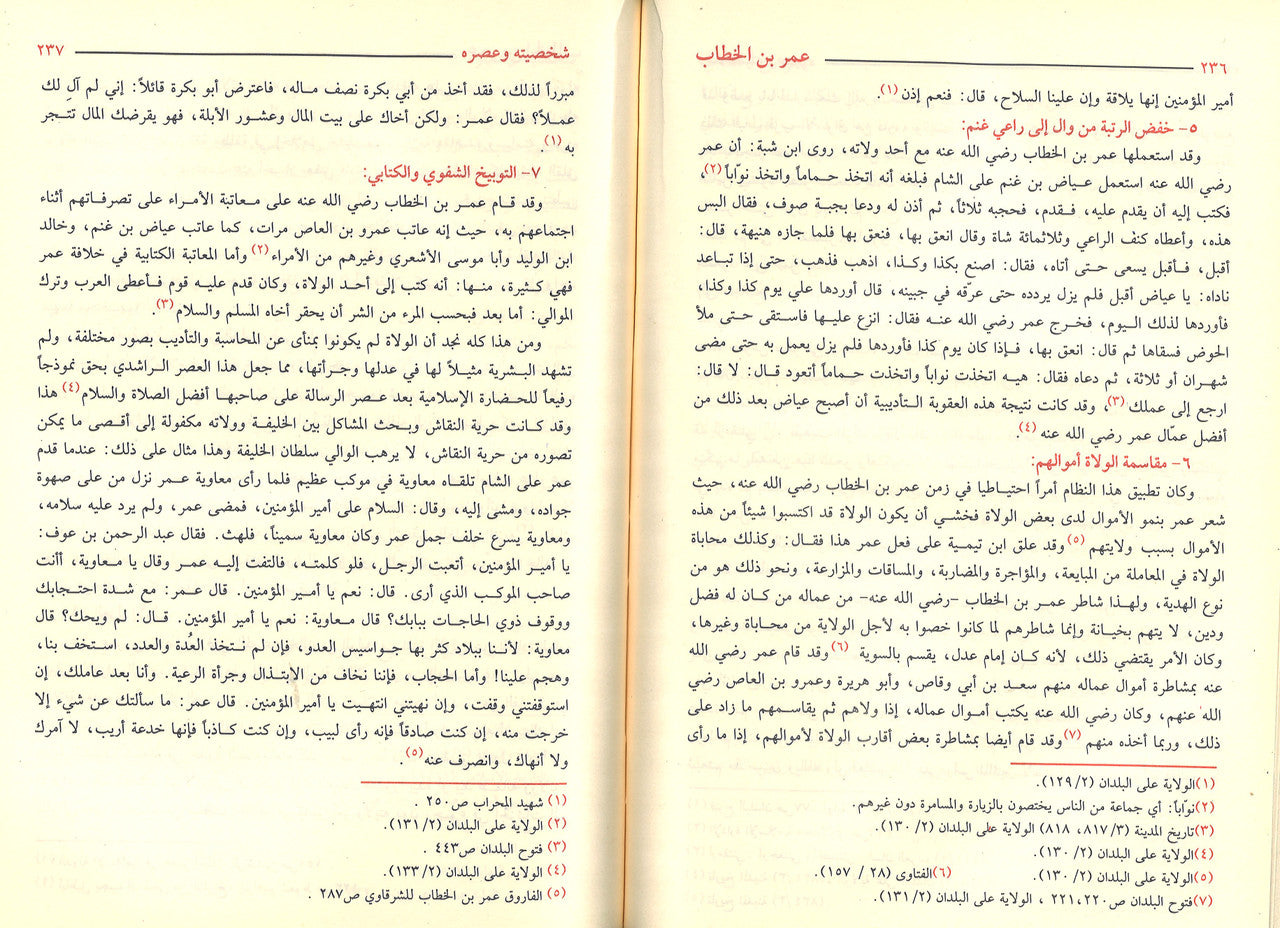 ٢٣٦ عمر بن الخطاب
أمير المؤمنين إنها يلاقة وإن علينا السلاح، قال: فنعم إذن(١).
٥- خفض الرتبة من وال إلى راعي غنم:
وقد استعملها عمر بن الخطاب رضي الله عنه مع أحد ولاته، روى ابن شبة: أن عمر
رضي الله عنه استعمل عياض بن غنم على الشام فبلغه أنه اتخذ حماماً واتخذ نوّاباً(٢)،
فكتب إليه أن يقدم عليه، فقدم، فحجبه ثلاثاً، ثم أذن له ودعا بجبة صوف، فقال البس
هذه، وأعطاه كنف الراعي وثلاثمائة شاة وقال انعق بها، فنعق بها فلما جازه هنيهة، قال:
أقبل، فأقبل يسعى حتى أتاه، فقال: اصنع بكذا وكذا، اذهب فذهب، حتى إذا تباعد
ناداه: يا عياض أقبل فلم يزل يردده حتى عرّقه في جبينه، قال أوردها علي يوم كذا وكذا،
فأوردها لذلك اليوم، فخرج عمر رضي الله عنه فقال: انزع عليها فاستقى حتى ملأ
الحوض فسقاها ثم قال: انعق بها، فإذا كان يوم كذا فأوردها فلم يزل يعمل به حتى مضى
شهران أو ثلاثة، ثم دعاه فقال: هيه اتخذت نواباً واتخذت حماماً أتعود قال: لا قال:
ارجع إلى عملك(٣)، وقد كانت نتيجة هذه العقوبة التأديبية أن أصبح عياض بعد ذلك من
أفضل عمّال عمر رضي الله عنه(٤).
٦- مقاسمة الولاة أموالهم:
وكان تطبيق هذا النظام أمراً احتياطيا في زمن عمر بن الخطاب رضي الله عنه، حيث
شعر عمر بنمو الأموال لدى بعض الولاة فخشي أن يكون الولاة قد اكتسبوا شيئاً من هذه
الأموال بسبب ولايتهم(٥) وقد علق ابن تيمية على فعل عمر هذا فقال: وكذلك محاباة
الولاة في المعاملة من المبايعة، والمؤاجرة والمضاربة، والمساقات والمزارعة، ونحو ذلك هو من
نوع الهدية، ولهذا شاطر عمر بن الخطاب -رضي الله عنه- من عماله من كان له فضل
ودين، لا يتهم بخيانة وإنما شاطرهم لما كانوا خصوا به لأجل الولاية من محاباة وغيرها،
وكان الأمر يقتضي ذلك، لأنه كان إمام عدل، يقسم بالسوية (٦) وقد قام عمر رضي الله
عنه بمشاطرة أموال عماله منهم سعد بن أبي وقاص، وأبو هريرة وعمرو بن العاص رضي
الله عنهم، وكان رضي الله عنه يكتب أموال عماله، إذا ولاهم ثم يقاسمهم ما زاد على
ذلك، وربما أخذه منهم(٧) وقد قام أيضا بمشاطرة بعض أقارب الولاة لأموالهم، إذا ما رأى
(١)الولاية على البلدان (١٢٩/٢).
(٢)نوّاباً: أي جماعة من الناس يختصون بالزيارة والمسامرة دون غيرهم.
(٣)تاريخ المدينة (٨١٧/٣، ٨١٨) الولاية على البلدان (٢/ ١٣٠).
(٤)الولاية على البلدان (٢/ ١٣٠).
(٥)الولاية على البلدان (٢/ ١٣٠). (٦)الفتاوى (٢٨ / ١٥٧).
(٧)فتوح البلدان ص٢٢١،٢٢٠ ، الولاية على البلدان (١٣١/٢).
شخصيته وعصره ٢٣٧
مبرراً لذلك، فقد أخذ من أبي بكرة نصف ماله، فاعترض أبو بكرة قائلاً: إني لم آلِ لك
عملاً؟ فقال عمر: ولكن أخاك على بيت المال وعشور الأبلة، فهو يقرضك المال تتجر
به(١).
٧- التوبيخ الشفوي والكتابي:
وقد قام عمر بن الخطاب رضي الله عنه على معاتبة الأمراء على تصرفاتهم أثناء
اجتماعهم به، حيث إنه عاتب عمرو بن العاص مرات، كما عاتب عياض بن غنم، وخالد
ابن الوليد وأبا موسى الأشعري وغيرهم من الأمراء(٢) وأما المعاتبة الكتابية في خلافة عمر
فهي كثيرة، منها: أنه كتب إلى أحد الولاة، وكان قدم عليه قوم فأعطى العرب وترك
الموالي: أما بعد فبحسب المرء من الشر أن يحقر أخاه المسلم والسلام(٣).
ومن هذا كله نجد أن الولاة لم يكونوا بمنأى عن المحاسبة والتأديب بصور مختلفة، ولم
تشهد البشرية مثيلاً لها في عدلها وجرأتها، مما جعل هذا العصر الراشدي بحق نموذجاً
رفيعاً للحضارة الإسلامية بعد عصر الرسالة على صاحبها أفضل الصلاة والسلام(٤) هذا
وقد كانت حرية النقاش وبحث المشاكل بين الخليفة وولاته مكفولة إلى أقصى ما يمكن
تصوره من حرية النقاش، لا يرهب الوالي سلطان الخليفة وهذا مثال على ذلك: عندما قدم
عمر على الشام تلقاه معاوية في موكب عظيم فلما رأى معاوية عمر نزل من على صهوة
جواده، ومشى إليه، وقال: السلام على أمير المؤمنين، فمضى عمر، ولم يرد عليه سلامه،
ومعاوية يسرع خلف جمل عمر وكان معاوية سميناً، فلهث. فقال عبد الرحمن بن عوف:
يا أمير المؤمنين، أتعبت الرجل، فلو كلمته، فالتفت إليه عمر وقال يا معاوية، أأنت
صاحب الموكب الذي أرى. قال: نعم يا أمير المؤمنين. قال عمر: مع شدة احتجابك
ووقوف ذوي الحاجات ببابك؟ قال معاوية: نعم يا أمير المؤمنين. قال: لم ويحك؟ قال
معاوية: لأننا ببلاد كثر بها جواسيس العدو، فإن لم نتخذ العُدة والعدد، استخف بنا،
وهجم علينا! وأما الحجاب، فإننا نخاف من الابتذال وجرأة الرعية. وأنا بعد عاملك، إن
استوقفتني وقفت، وإن نهيتني انتهيت يا أمير المؤمنين. قال عمر: ما سألتك عن شيء إلا
خرجت منه، إن كنت صادقاً فإنه رأى لبيب، وإن كنت كاذباً فإنها خدعة أريب، لا آمرك
ولا أنهاك، وانصرف عنه(٥).
(١) شهيد المحراب ص٢٥٠ .
(٢) الولاية على البلدان (١٣١/٢).
(٣) فتوح البلدان ص٤٤٣ .
(٤) الولاية على البلدان (١٣٣/٢).
(٥) الفاروق عمر بن الخطاب للشرقاوي ص٢٨٧ .